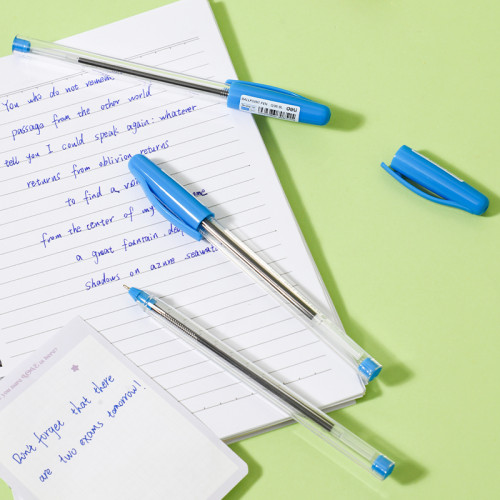 BALLPOINT PEN
deli
You who do not remem
passage from the other world
tell you I could speak again: whatever
returns from oblivion returns
to find a
from the center of my
a great fountain, deep
shadows on azure seawat
Don't forget that there
are two exams tomorrow!